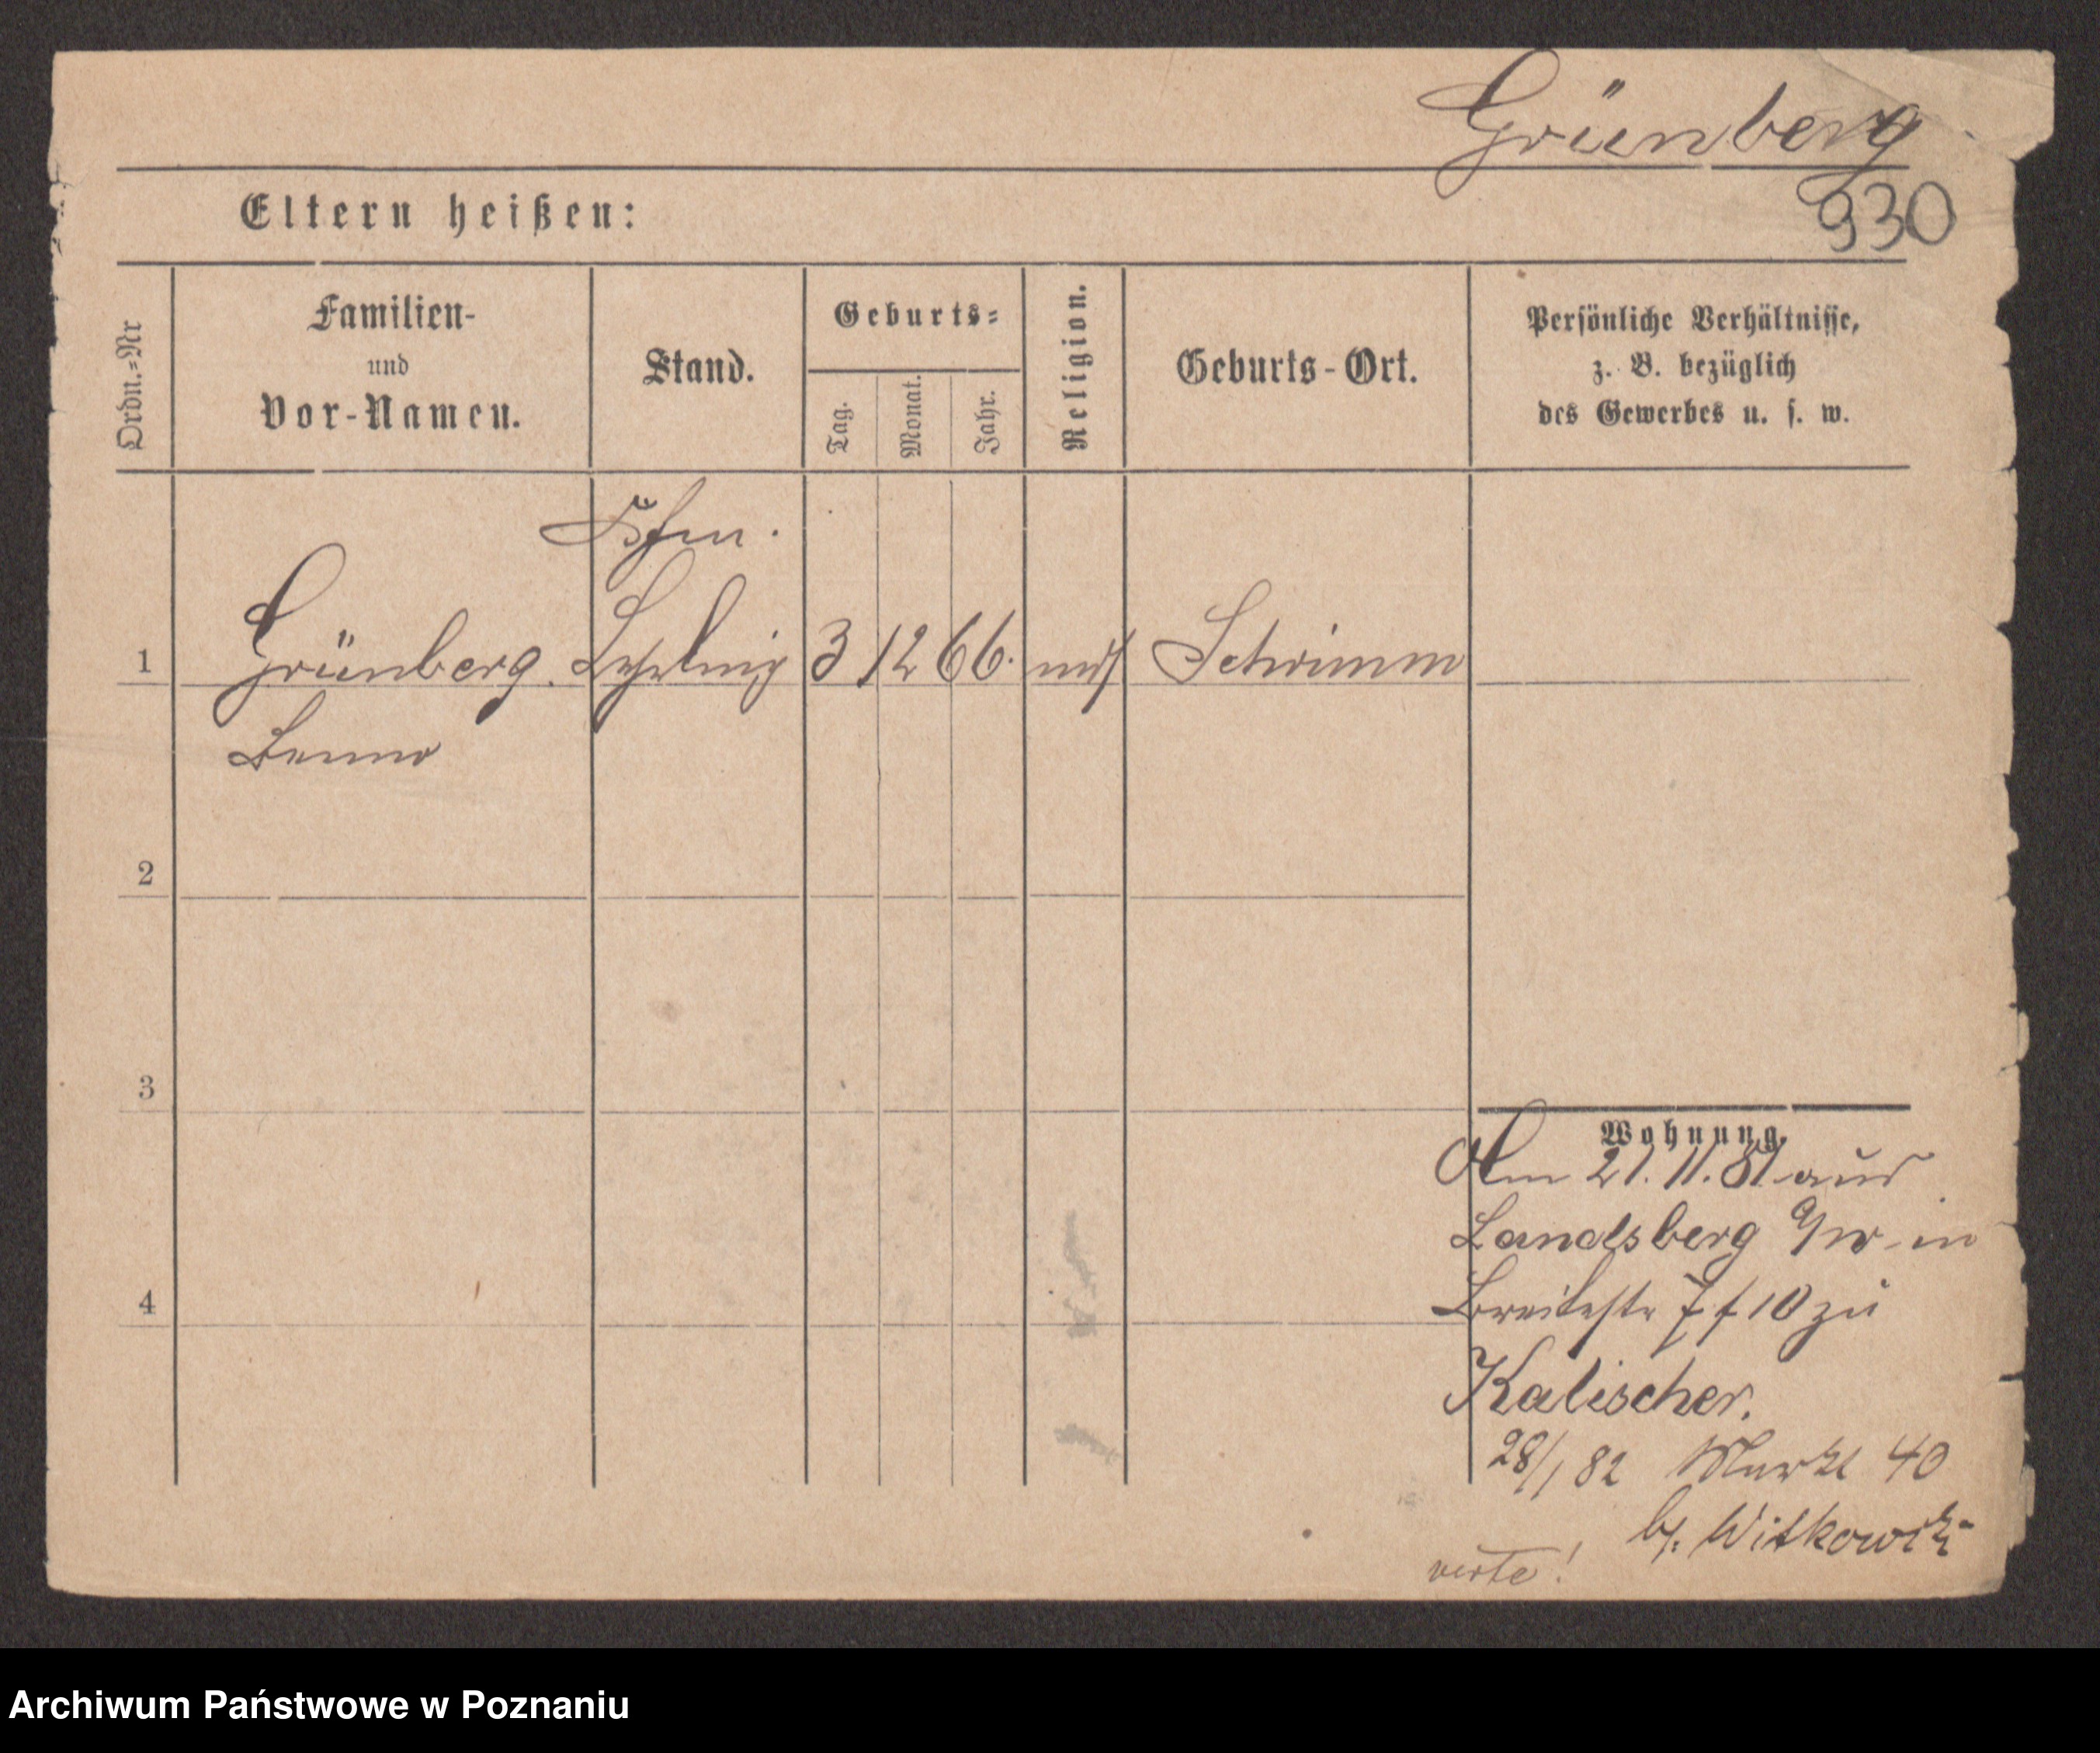 Grünberg
930
Eltern heißen:
Ordn.-Nr
Familien-
und
Vor-Namen.
Stand.
Geburts-
Tag.
Monat.
Jahr.
Religion.
Geburts-Ort.
Persönliche Verhältnisse,
z. B. bezüglich
des Gewerbes u. s. w.
Kfm.
1 Grünberg. Lehrling 3 12 66. mos Schrimm
Benno
2
3
4
Wohnung.
Am 21.11.81 aus
Landsberg in
Breitestr 10 zu
Kalischer.
28/1 82 Markt 40
b/. Witkowski
verte!
Archiwum Państwowe w Poznaniu